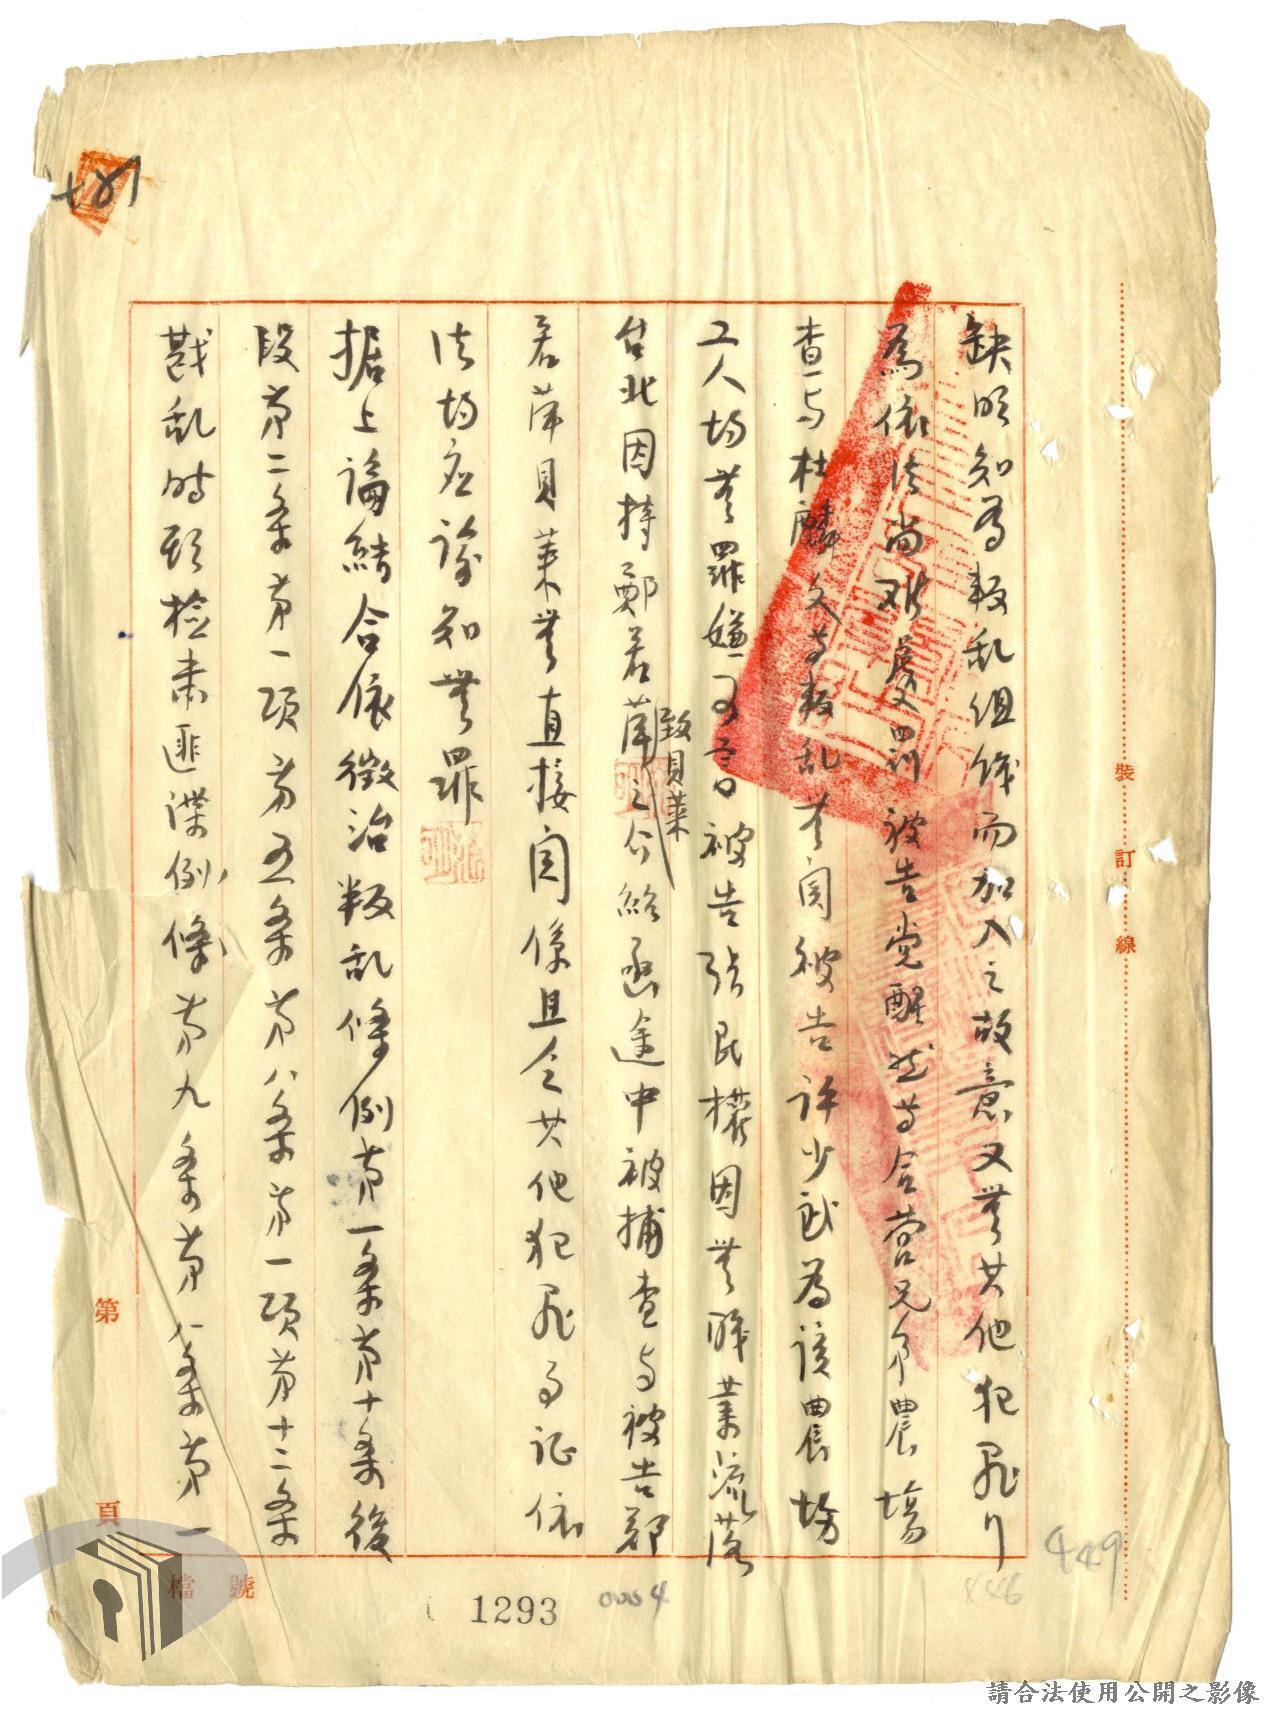 缺明知為叛乱組織而加入之故意又無其他犯罪行
為依法尚难處罰被告党醒然等合营兄弟農場
查与杜麟文等叛乱無関被告許少武為該農場
工人均無罪嫌可言被告張民權因無職業流落
台北因持鄭若萍致貝萊之介紹函途中被捕查与被告鄭
若萍貝萊無直接関係且仝其他犯罪事证依
法均应諭知無罪
据上論結合依懲治叛乱條例第一条第十条後
段第二条第一項第五条第八条第一項第十二条
戡乱时期检肃匪諜條例第九条第八条第一
裝訂線
第 頁
檔 號
1293
0004
449
446
請合法使用公開之影像